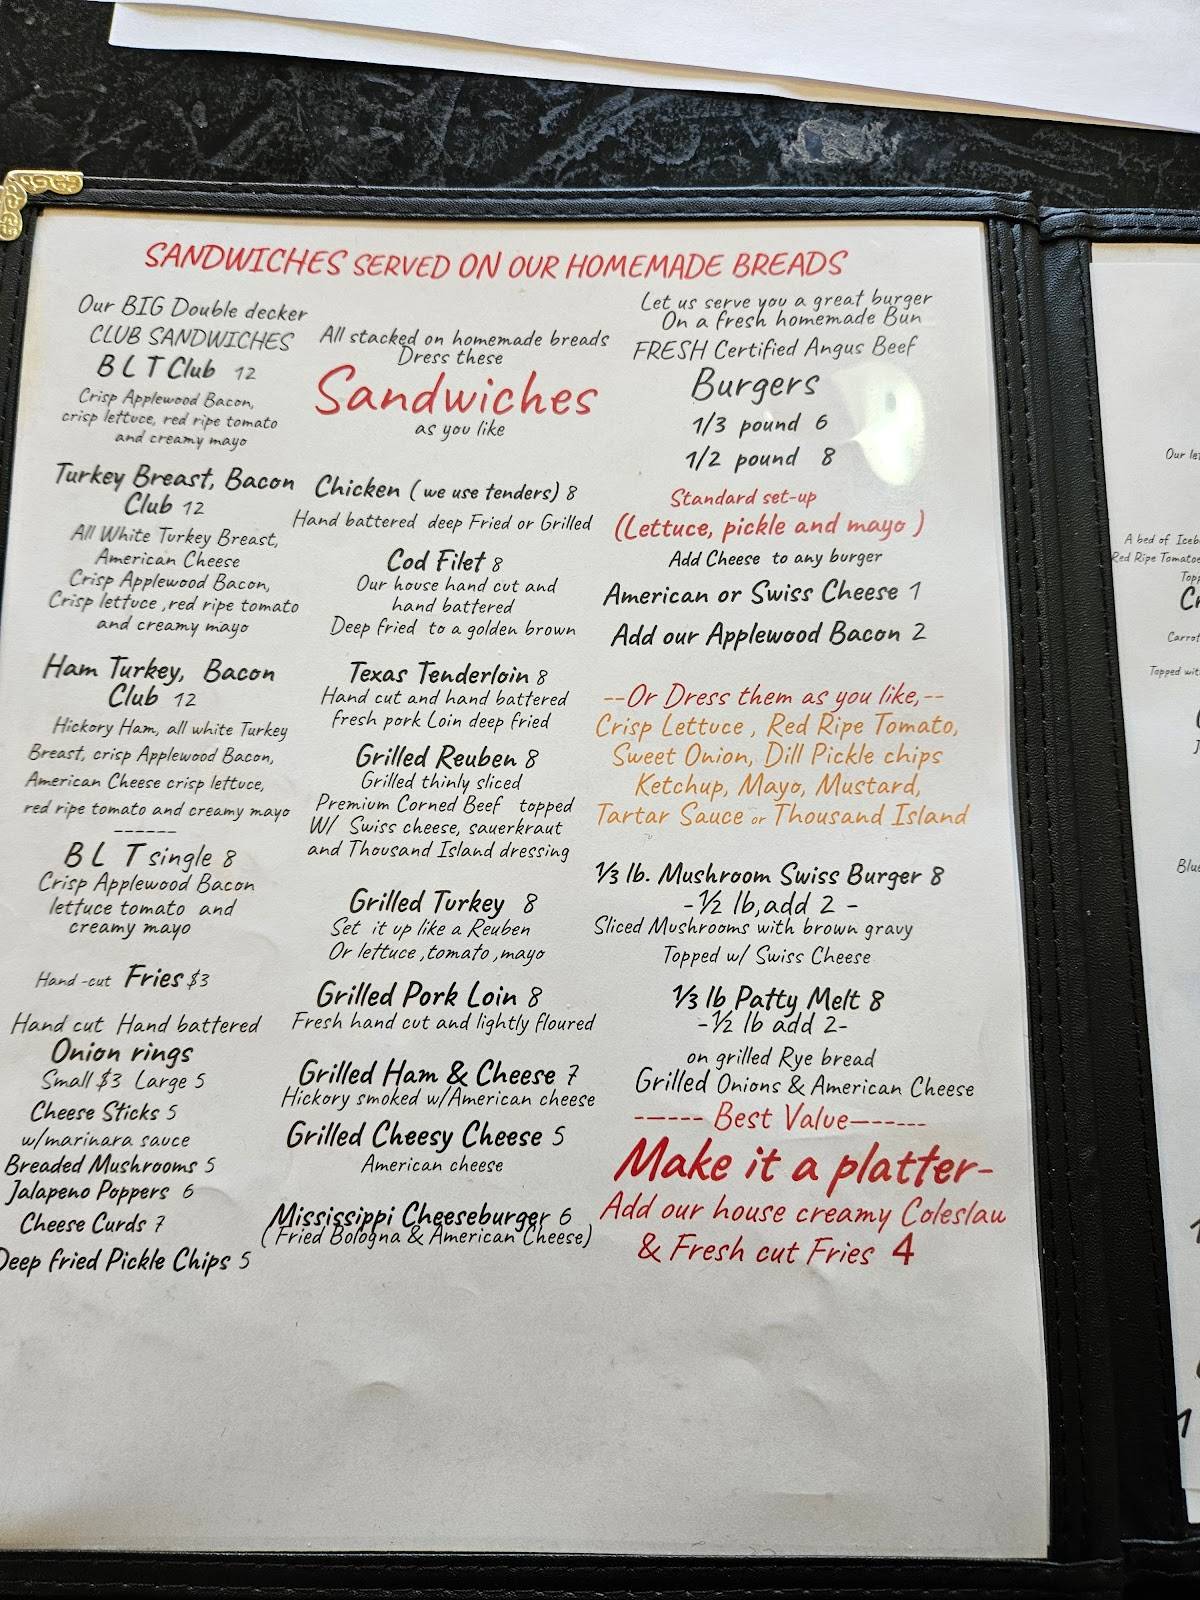 SANDWICHES SERVED ON OUR HOMEMADE BREADS
Our BIG Double decker
CLUB SANDWICHES
B L T Club 12
Crisp Applewood Bacon,
crisp lettuce, red ripe tomato
and creamy mayo
Turkey Breast, Bacon
Club 12
All White Turkey Breast,
American Cheese
Crisp Applewood Bacon,
Crisp lettuce ,red ripe tomato
and creamy mayo
Ham Turkey, Bacon
Club 12
Hickory Ham, all white Turkey
Breast, crisp Applewood Bacon,
American Cheese crisp lettuce,
red ripe tomato and creamy mayo
------
B L T single 8
Crisp Applewood Bacon
lettuce tomato and
creamy mayo
Hand -cut Fries $3
Hand cut Hand battered
Onion rings
Small $3 Large 5
Cheese Sticks 5
w/marinara sauce
Breaded Mushrooms 5
Jalapeno Poppers 6
Cheese Curds 7
Deep fried Pickle Chips 5
All stacked on homemade breads
Dress these
Sandwiches
as you like
Chicken ( we use tenders) 8
Hand battered deep Fried or Grilled
Cod Filet 8
Our house hand cut and
hand battered
Deep fried to a golden brown
Texas Tenderloin 8
Hand cut and hand battered
fresh pork Loin deep fried
Grilled Reuben 8
Grilled thinly sliced
Premium Corned Beef topped
W/ Swiss cheese, sauerkraut
and Thousand Island dressing
Grilled Turkey 8
Set it up like a Reuben
Or lettuce ,tomato ,mayo
Grilled Pork Loin 8
Fresh hand cut and lightly floured
Grilled Ham & Cheese 7
Hickory smoked w/American cheese
Grilled Cheesy Cheese 5
American cheese
Mississippi Cheeseburger 6
(Fried Bologna & American Cheese)
Let us serve you a great burger
On a fresh homemade Bun
FRESH Certified Angus Beef
Burgers
1/3 pound 6
1/2 pound 8
Standard set-up
(Lettuce, pickle and mayo )
Add Cheese to any burger
American or Swiss Cheese 1
Add our Applewood Bacon 2
--Or Dress them as you like,--
Crisp Lettuce , Red Ripe Tomato,
Sweet Onion, Dill Pickle chips
Ketchup, Mayo, Mustard,
Tartar Sauce or Thousand Island
⅓ lb. Mushroom Swiss Burger 8
-½ lb,add 2 -
Sliced Mushrooms with brown gravy
Topped w/ Swiss Cheese
⅓ lb Patty Melt 8
-½ lb add 2-
on grilled Rye bread
Grilled Onions & American Cheese
------ Best Value------
Make it a platter-
Add our house creamy Coleslaw
& Fresh cut Fries 4
Our
A bed of
Red Ripe
Topped